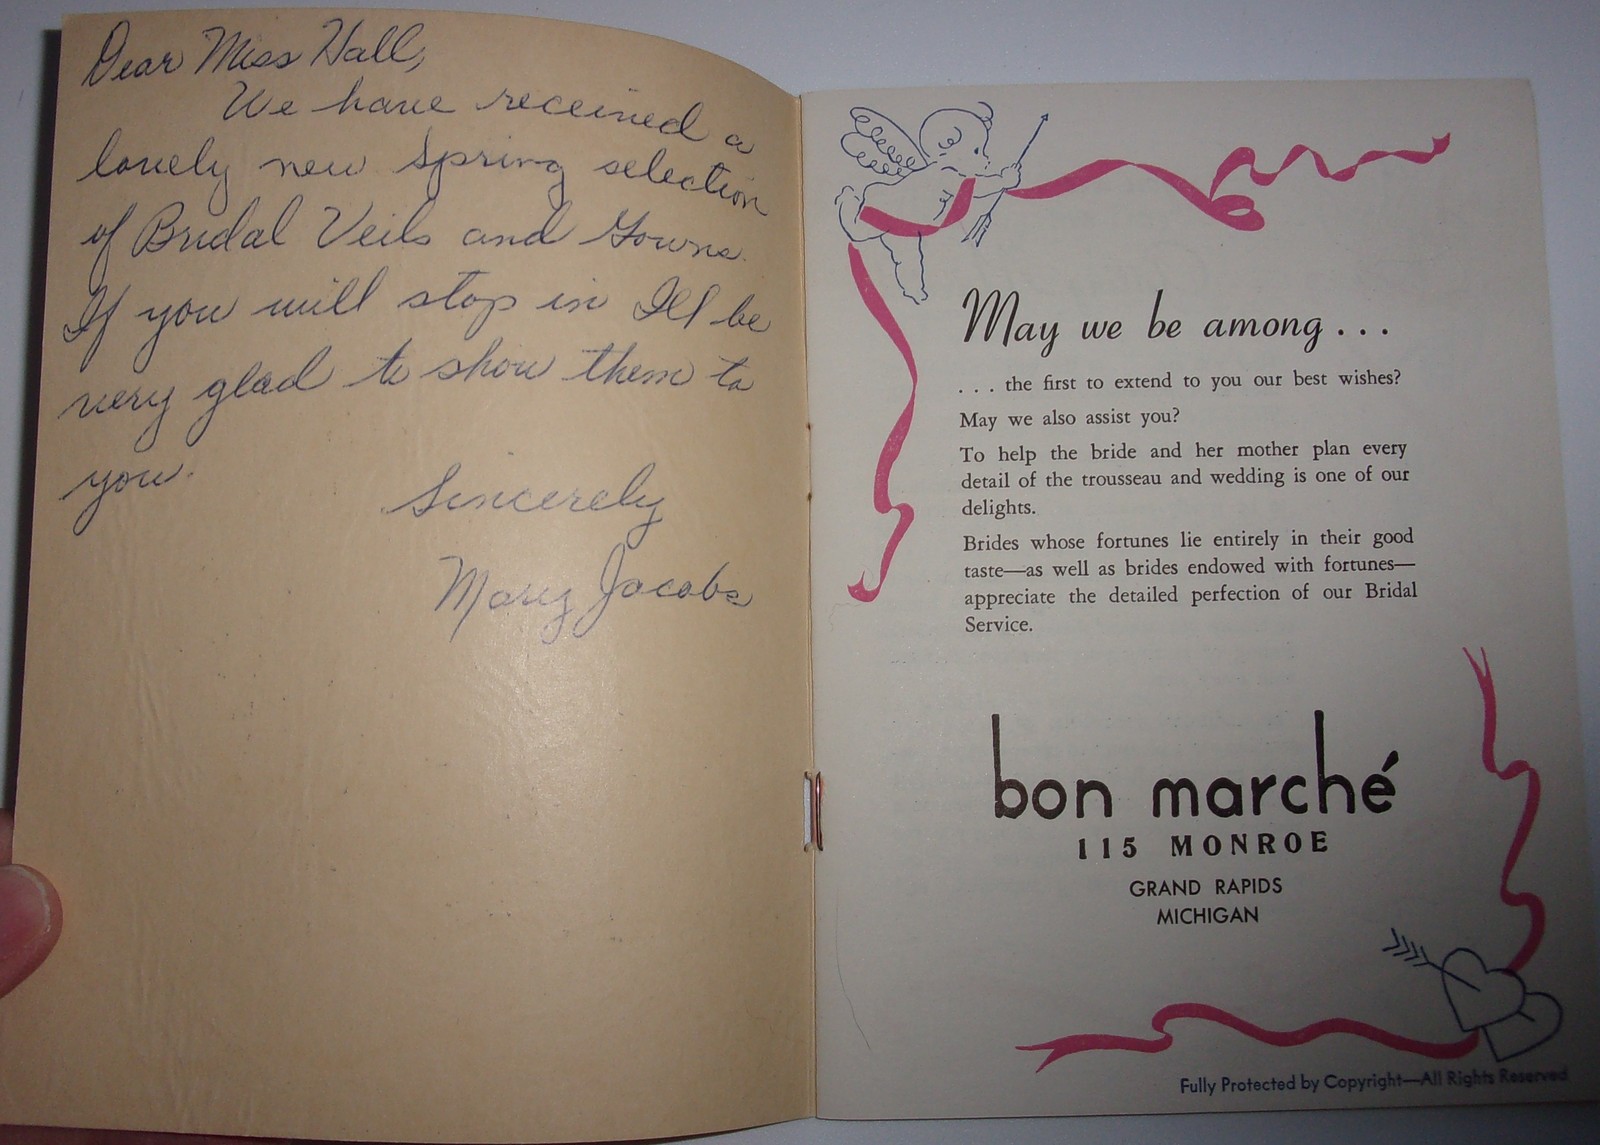 Dear Miss Hall,
We have received a
lovely new Spring selection
of Bridal Veils and Gowns.
If you will stop in I'll be
very glad to show them to
you.
Sincerely
Mary Jacobs
May we be among . . .
. . . the first to extend to you our best wishes?
May we also assist you?
To help the bride and her mother plan every
detail of the trousseau and wedding is one of our
delights.
Brides whose fortunes lie entirely in their good
taste—as well as brides endowed with fortunes—
appreciate the detailed perfection of our Bridal
Service.
bon marché
115 MONROE
GRAND RAPIDS
MICHIGAN
Fully Protected by Copyright—All Rights Reserved